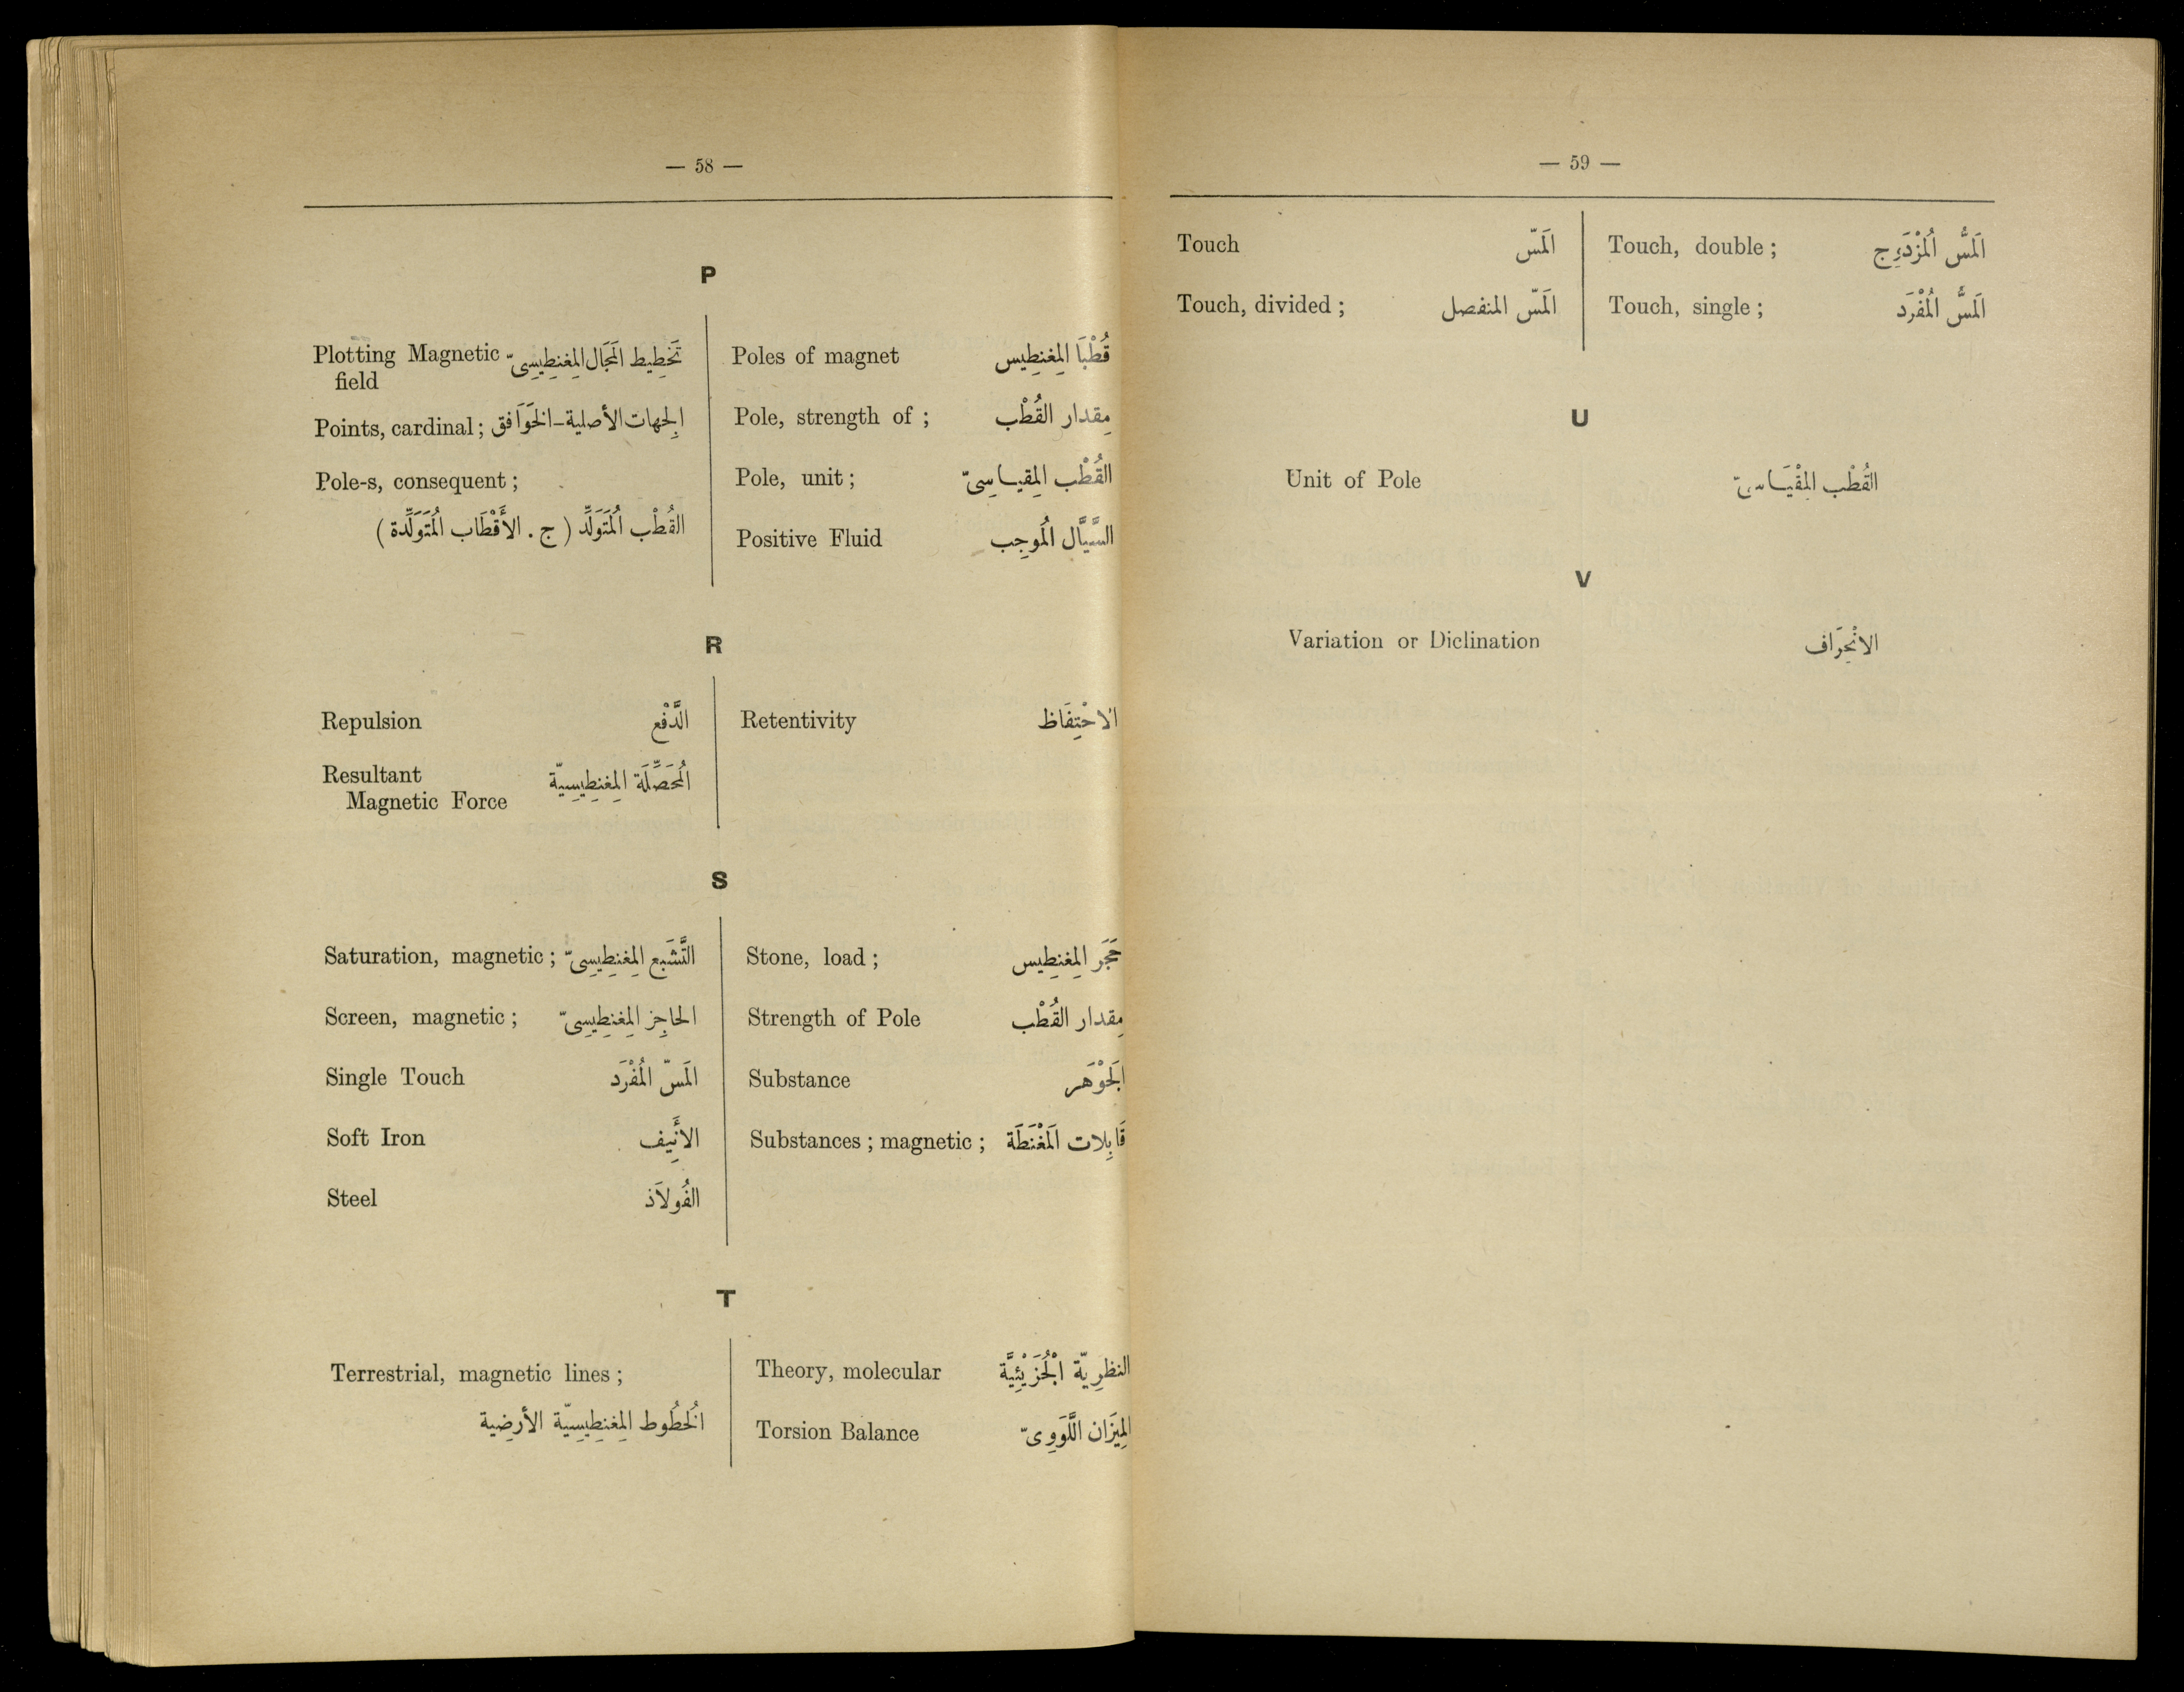 — 58 —
P
Plotting Magnetic field تَخْطِيط الَمجَال المِغنِطِيسِىّ
Points, cardinal ; الِجهات الأصلية - الخَوَافق
Pole-s, consequent ;
القُطْب المُتَوَلِّد ( ج . الأَقْطَاب المُتَوَلِّدة )
Poles of magnet قُطْبَا المِغنِطِيس
Pole, strength of ; مِقدار القُطْب
Pole, unit ; القُطْب المِقياسِىّ
Positive Fluid السَّيَّال المُوجِب
R
Repulsion الدَّفْع
Resultant
Magnetic Force المُحَصِّلَة المِغنِطِيسِيّة
Retentivity الاحْتِفَاظ
S
Saturation, magnetic ; التَّشَبع المِغنِطِيسِىّ
Screen, magnetic ; الحاجِز المِغنِطِيسِىّ
Single Touch المَسّ المُفْرَد
Soft Iron الأَنِيف
Steel الفُولاَذ
Stone, load ; حَجَر المِغنِطِيس
Strength of Pole مِقدار القُطْب
Substance الَجوْهَر
Substances ; magnetic ; قَابِلات المَغْنَطَة
T
Terrestrial, magnetic lines ;
الُخطُوط المِغنِطِيسِيّة الأرضِية
Theory, molecular النظرِيّة الْجُزَيْئِيَّة
Torsion Balance المِيَزان اللَّوَوِىّ
— 59 —
Touch المَسّ
Touch, divided ; المَسّ المنفصل
Touch, double ; المَسُّ المُزْدَوِج
Touch, single ; المَسُّ المُفْرَد
U
Unit of Pole القُطْب المِقْيَاسىّ
V
Variation or Diclination الانْحِرَاف